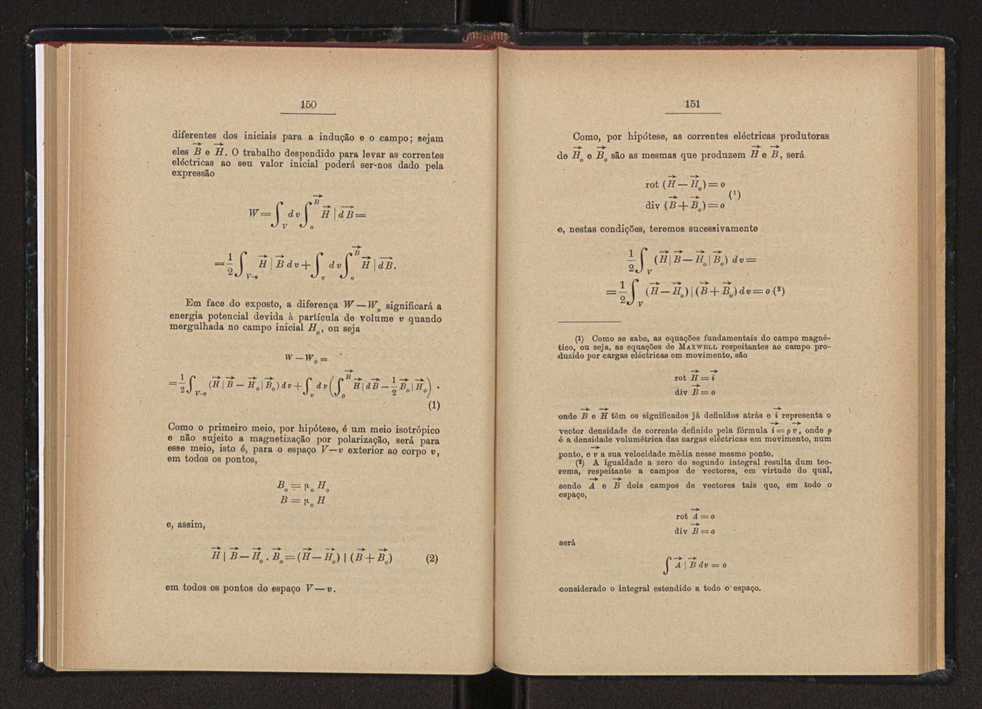 150
diferentes dos iniciais para a indução e o campo; sejam
eles B⃗ e H⃗. O trabalho despendido para levar as correntes
eléctricas ao seu valor inicial poderá ser-nos dado pela
expressão
W = ∫_V dv ∫_o^B⃗ H⃗ | dB⃗ =
= 1/2 ∫_{V-v} H⃗ | B⃗ dv + ∫_v dv ∫_o^B⃗ H⃗ | dB⃗.
Em face do exposto, a diferença W — W_o significará a
energia potencial devida à partícula de volume v quando
mergulhada no campo inicial H_o, ou seja
W — W_o =
= 1/2 ∫_{V-v} (H⃗ | B⃗ — H⃗_o | B⃗_o) dv + ∫_v dv (∫_o^B⃗ H⃗ | dB⃗ — 1/2 B⃗_o | H⃗_o) .
(1)
Como o primeiro meio, por hipótese, é um meio isotrópico
e não sujeito a magnetização por polarização, será para
esse meio, isto é, para o espaço V—v exterior ao corpo v,
em todos os pontos,
B_o = μ_o H_o
B = μ_o H
e, assim,
H⃗ | B⃗ — H⃗_o . B⃗_o = (H⃗ — H⃗_o) | (B⃗ + B⃗_o) (2)
em todos os pontos do espaço V — v.
151
Como, por hipótese, as correntes eléctricas produtoras
de H⃗_o e B⃗_o são as mesmas que produzem H⃗ e B⃗, será
rot (H⃗ — H⃗_o) = o
(1)
div (B⃗ + B⃗_o) = o
e, nestas condições, teremos sucessivamente
1/2 ∫_V (H⃗ | B⃗ — H⃗_o | B⃗_o) dv =
= 1/2 ∫_V (H⃗ — H⃗_o) | (B⃗ + B⃗_o) dv = o (2)
(1) Como se sabe, as equações fundamentais do campo magné-
tico, ou seja, as equações de MAXWELL respeitantes ao campo pro-
duzido por cargas eléctricas em movimento, são
rot H⃗ = i⃗
div B⃗ = o
onde B⃗ e H⃗ têm os significados já definidos atrás e i⃗ representa o
vector densidade de corrente definido pela fórmula i⃗ = ρ v⃗, onde ρ
é a densidade volumétrica das cargas eléctricas em movimento, num
ponto, e v⃗ a sua velocidade média nesse mesmo ponto.
(2) A igualdade a zero do segundo integral resulta dum teo-
rema, respeitante a campos de vectores, em virtude do qual,
sendo A⃗ e B⃗ dois campos de vectores tais que, em todo o
espaço,
rot A⃗ = o
div B⃗ = o
será
∫ A⃗ | B⃗ dv = o
considerado o integral estendido a todo o espaço.